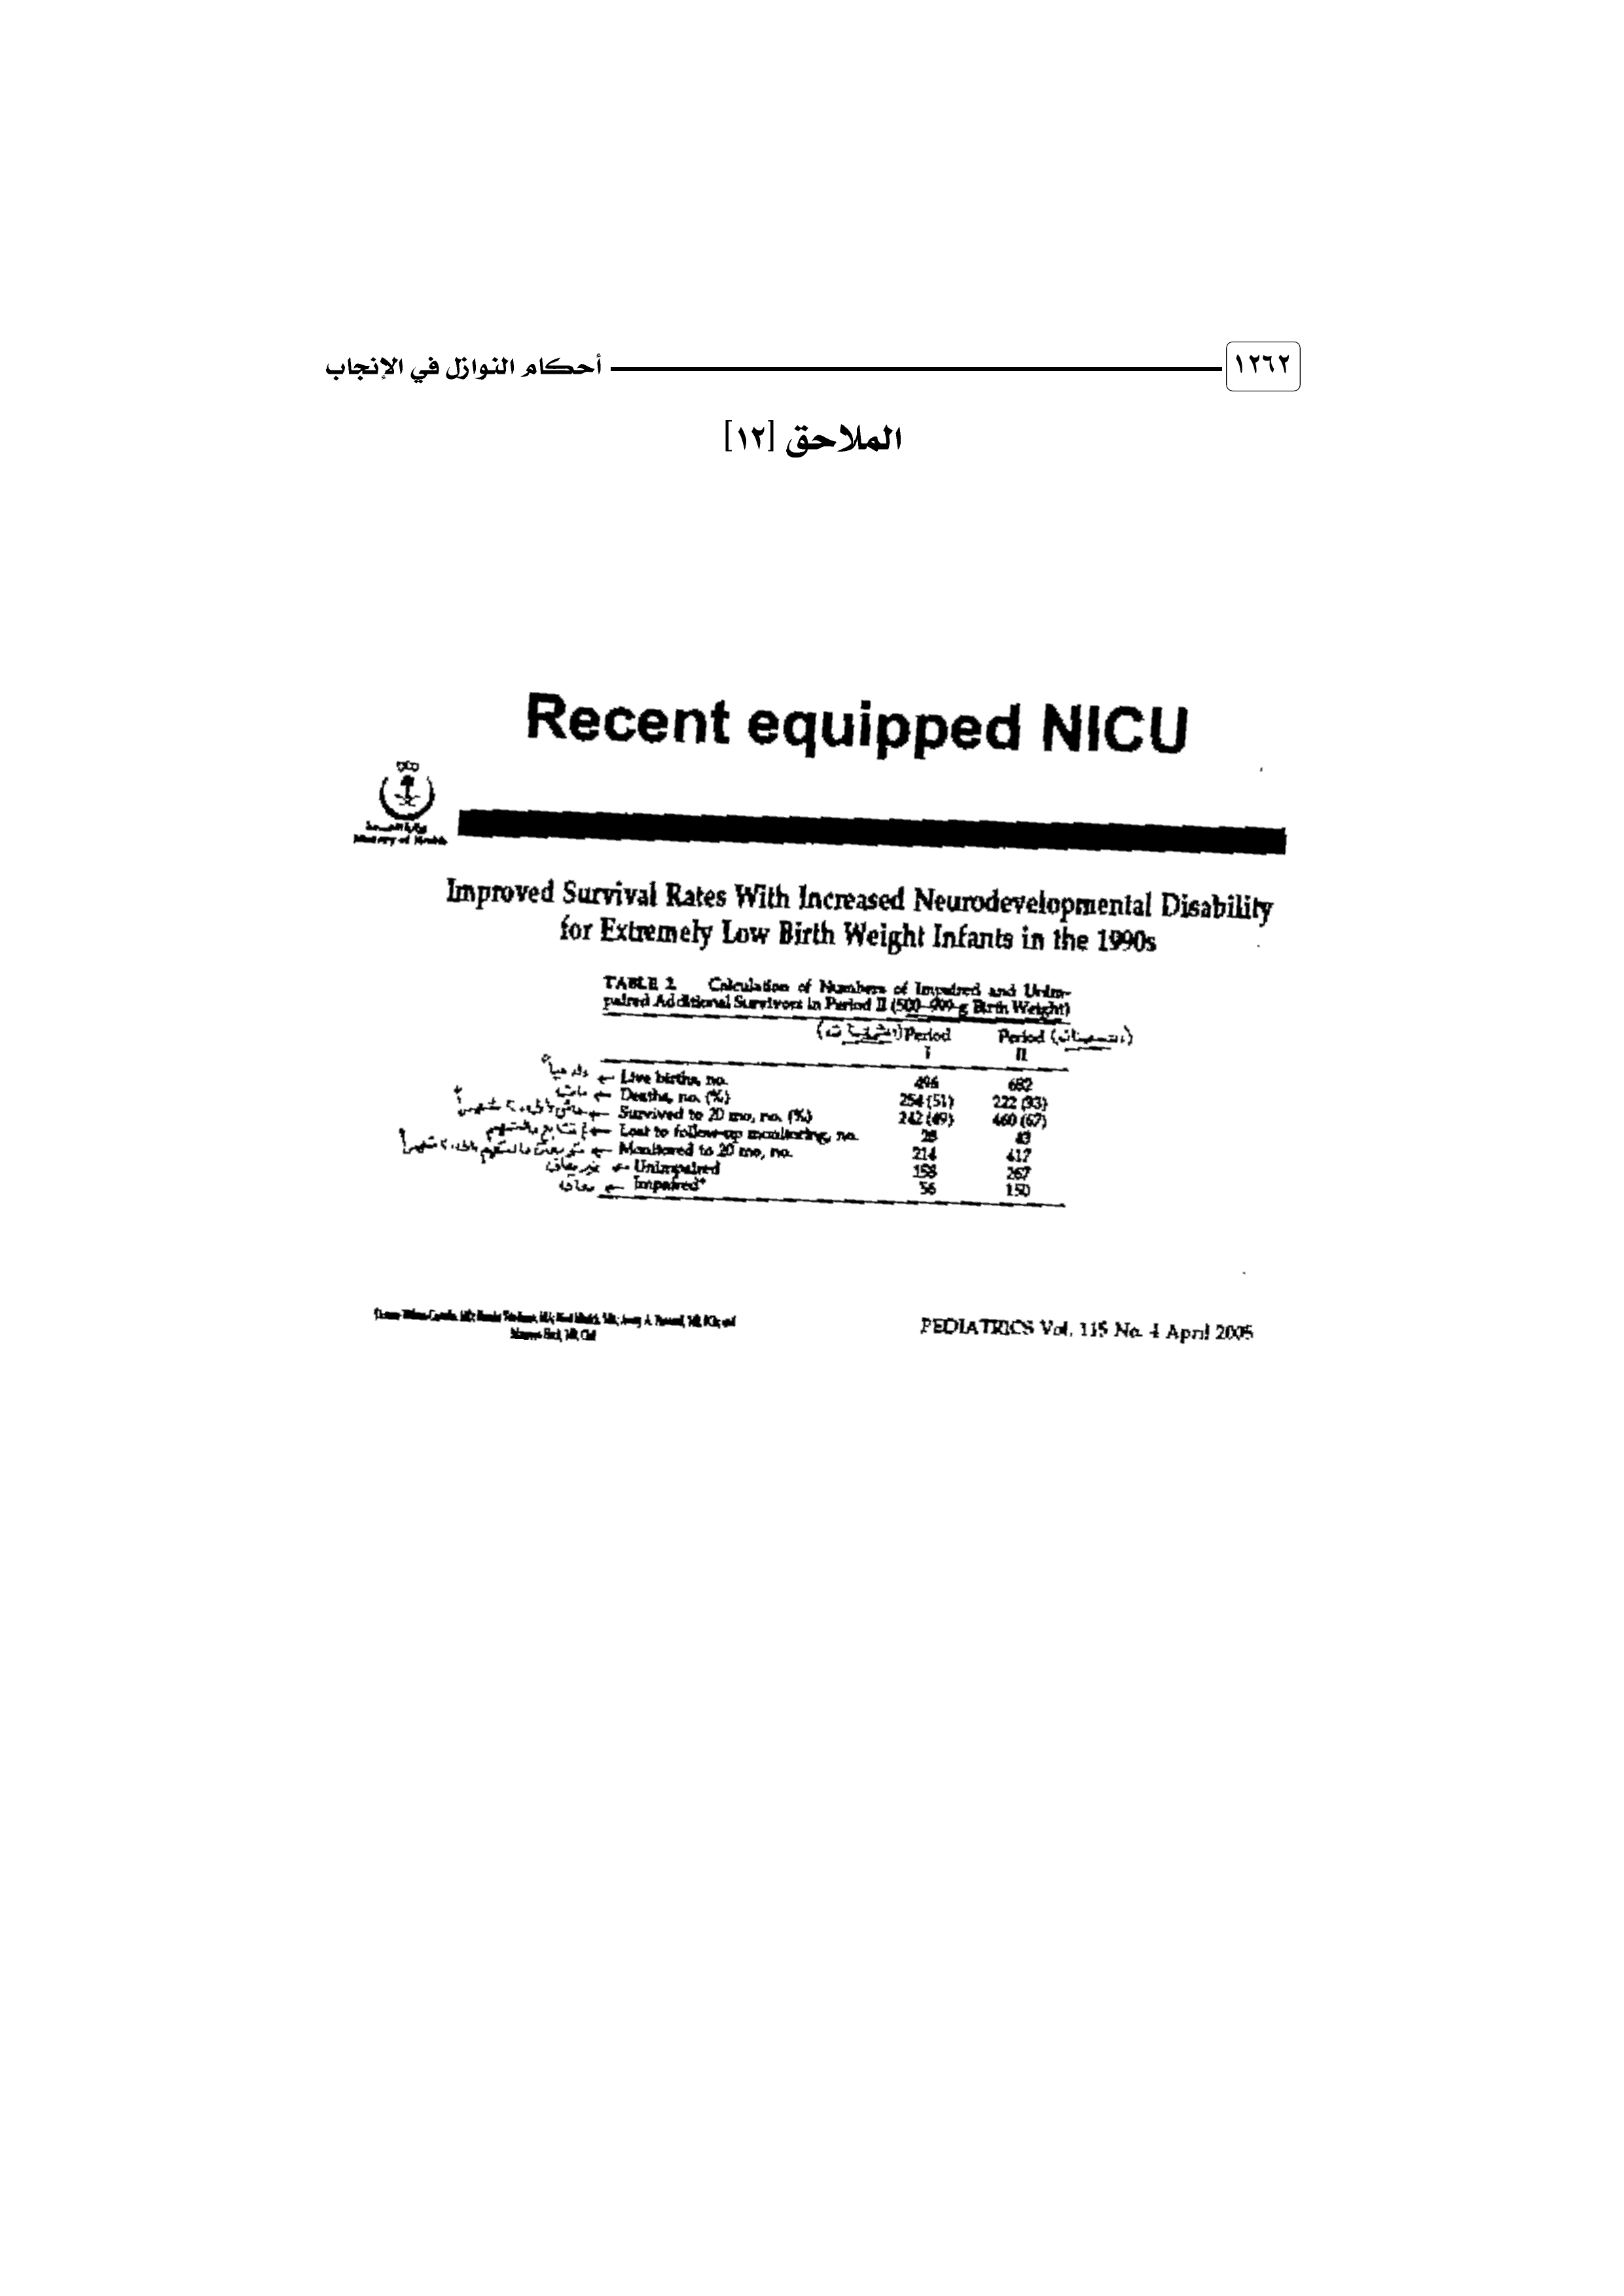 ١٢٦٢ أحكام النوازل في الإنجاب
الملاحق [١٢]
Recent equipped NICU
وزارة الصحة
Ministry of Health
Improved Survival Rates With Increased Neurodevelopmental Disability
for Extremely Low Birth Weight Infants in the 1990s
TABLE 2. Calculation of Numbers of Impaired and Unim-
paired Additional Survivors in Period II (500–999 g Birth Weight)
Period Period
I II
ولد حياً ← Live births, no. 496 682
مات ← Deaths, no. (%) 254 (51) 222 (33)
Survived to 20 mo, no. (%) 242 (49) 460 (67)
Lost to follow-up monitoring, no. 28 43
Monitored to 20 mo, no. 214 417
غير معاق ← Unimpaired 158 267
معاق ← Impaired* 56 150
PEDIATRICS Vol. 115 No. 4 April 2005